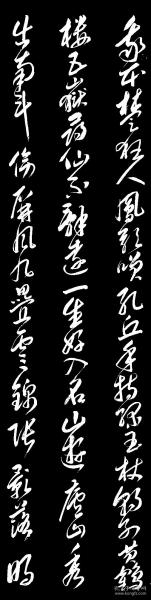 我本楚狂人鳳歌笑孔丘手持綠玉杖朝別黃鶴
樓五嶽尋仙不辭遠一生好入名山遊廬山秀
出南斗傍屏風九疊雲錦張影落明